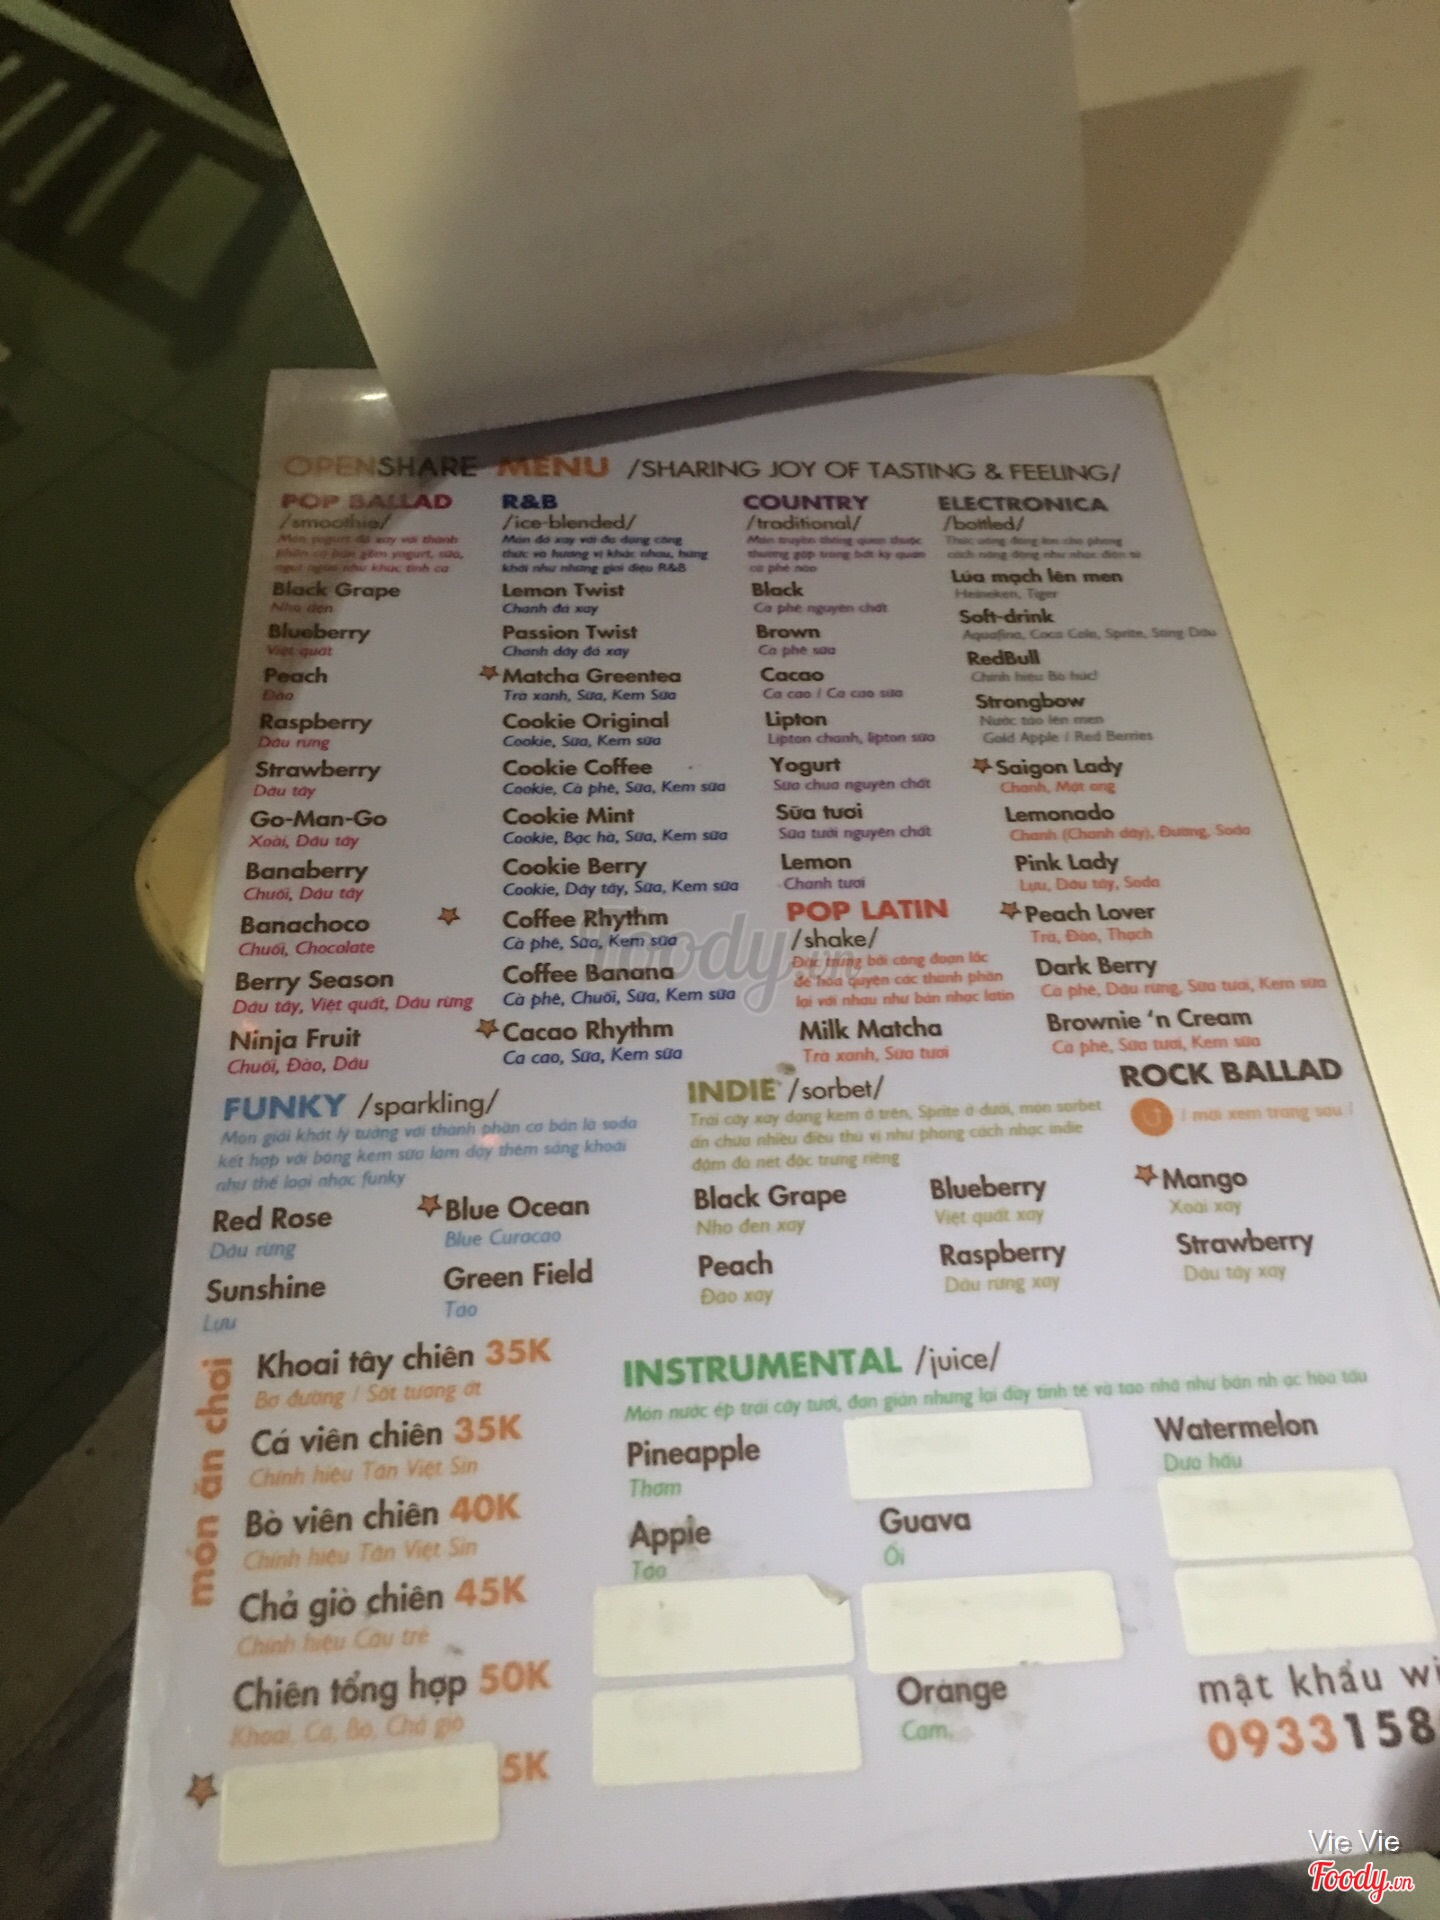 OPENSHARE MENU /SHARING JOY OF TASTING & FEELING/
POP BALLAD
/smoothie/
Món yogurt đá xay với thành
phần cơ bản gồm yogurt, sữa,
ngọt ngào như khúc tình ca
Black Grape
Nho đen
Blueberry
Việt quất
Peach
Đào
Raspberry
Dâu rừng
Strawberry
Dâu tây
Go-Man-Go
Xoài, Dâu tây
Banaberry
Chuối, Dâu tây
Banachoco
Chuối, Chocolate
Berry Season
Dâu tây, Việt quất, Dâu rừng
Ninja Fruit
Chuối, Đào, Dâu
R&B
/ice-blended/
Món đá xay với đa dạng công
thức và hương vị khác nhau, hứng
khởi như những giai điệu R&B
Lemon Twist
Chanh đá xay
Passion Twist
Chanh dây đá xay
Matcha Greentea
Trà xanh, Sữa, Kem Sữa
Cookie Original
Cookie, Sữa, Kem sữa
Cookie Coffee
Cookie, Cà phê, Sữa, Kem sữa
Cookie Mint
Cookie, Bạc hà, Sữa, Kem sữa
Cookie Berry
Cookie, Dây tây, Sữa, Kem sữa
Coffee Rhythm
Cà phê, Sữa, Kem sữa
Coffee Banana
Cà phê, Chuối, Sữa, Kem sữa
Cacao Rhythm
Ca cao, Sữa, Kem sữa
COUNTRY
/traditional/
Món truyền thống quen thuộc
thường gặp trong bất kỳ quán
cà phê nào
Black
Cà phê nguyên chất
Brown
Cà phê sữa
Cacao
Ca cao / Ca cao sữa
Lipton
Lipton chanh, lipton sữa
Yogurt
Sữa chua nguyên chất
Sữa tươi
Sữa tươi nguyên chất
Lemon
Chanh tươi
POP LATIN
/shake/
Đặc trưng bởi công đoạn lắc
để hòa quyện các thành phần
lại với nhau như bản nhạc latin
Milk Matcha
Trà xanh, Sữa tươi
ELECTRONICA
/bottled/
Thức uống đóng lon cho phong
cách năng động như nhạc điện tử
Lúa mạch lên men
Heineken, Tiger
Soft-drink
Aquafina, Coca Cola, Sprite, Sting Dâu
RedBull
Chính hiệu Bò húc!
Strongbow
Nước táo lên men
Gold Apple / Red Berries
Saigon Lady
Chanh, Mật ong
Lemonado
Chanh (Chanh dây), Đường, Soda
Pink Lady
Lựu, Dâu tây, Soda
Peach Lover
Trà, Đào, Thạch
Dark Berry
Cà phê, Dâu rừng, Sữa tươi, Kem sữa
Brownie 'n Cream
Cà phê, Sữa tươi, Kem sữa
FUNKY /sparkling/
Món giải khát lý tưởng với thành phần cơ bản là soda
kết hợp với bông kem sữa làm dậy thêm sảng khoái
như thể loại nhạc funky
Red Rose
Dâu rừng
Blue Ocean
Blue Curacao
Sunshine
Lựu
Green Field
Táo
INDIE /sorbet/
Trái cây xay dạng kem ở trên, Sprite ở dưới, món sorbet
ẩn chứa nhiều điều thú vị như phong cách nhạc indie
đậm đà nét độc trưng riêng
Black Grape
Nho đen xay
Blueberry
Việt quất xay
Mango
Xoài xay
Peach
Đào xay
Raspberry
Dâu rừng xay
Strawberry
Dâu tây xay
ROCK BALLAD
/ mời xem trang sau /
món ăn chơi
Khoai tây chiên 35K
Bơ đường / Sốt tương ớt
Cá viên chiên 35K
Chính hiệu Tân Việt Sin
Bò viên chiên 40K
Chính hiệu Tân Việt Sin
Chả giò chiên 45K
Chính hiệu Cầu tre
Chiên tổng hợp 50K
Khoai, Cá, Bò, Chả giò
5K
INSTRUMENTAL /juice/
Món nước ép trái cây tươi, đơn giản nhưng lại đầy tinh tế và tao nhã như bản nh ạc hòa tấu
Pineapple
Thơm
Watermelon
Dưa hấu
Apple
Táo
Guava
Ổi
Orange
Cam
mật khẩu wi
0933158
Foody.vn
Vie Vie
Foody.vn